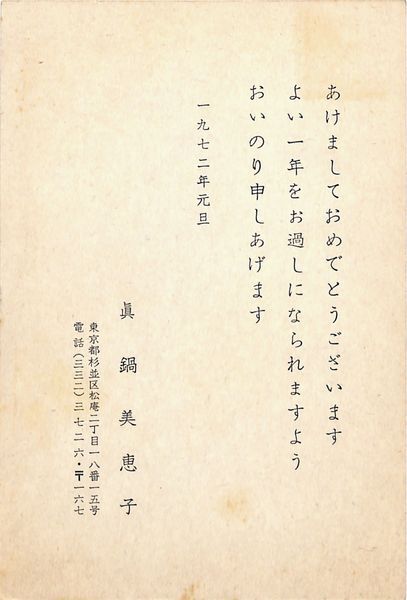 あけましておめでとうございます
よい一年をお過しになられますよう
おいのり申しあげます
一九七二年元旦
眞鍋美恵子
東京都杉並区松庵二丁目一八番一五号
電話(三三二)三七二六・〒一六七